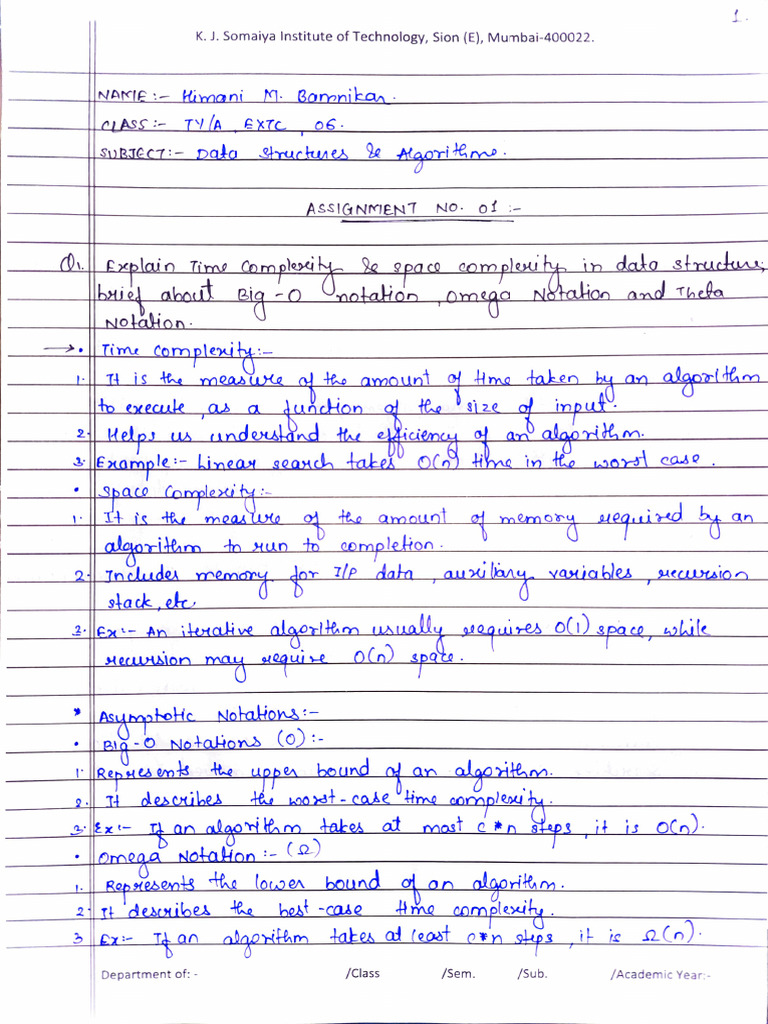 1.
K. J. Somaiya Institute of Technology, Sion (E), Mumbai-400022.
NAME :- Himani M. Bamnikar.
CLASS :- TY/A, EXTC, 06.
SUBJECT :- Data Structures & Algorithms.
ASSIGNMENT NO. 01 :-
Q1. Explain Time Complexity & space complexity in data structure,
brief about Big-O notation, Omega Notation and Theta
Notation.
→ • Time complexity :-
1. It is the measure of the amount of time taken by an algorithm
to execute, as a function of the size of input.
2. Helps us understand the efficiency of an algorithm.
3. Example :- Linear search takes O(n) time in the worst case.
• Space Complexity :-
1. It is the measure of the amount of memory required by an
algorithm to run to completion.
2. Includes memory for I/P data, auxiliary variables, recursion
stack, etc.
3. Ex :- An iterative algorithm usually requires O(1) space, while
recursion may require O(n) space.
* Asymptotic Notations :-
• Big-O Notations (O) :-
1. Represents the upper bound of an algorithm.
2. It describes the worst-case time complexity.
3. Ex :- If an algorithm takes at most c*n steps, it is O(n).
• Omega Notation :- (Ω)
1. Represents the lower bound of an algorithm.
2. It describes the best-case time complexity.
3 Ex :- If an algorithm takes at least c*n steps, it is Ω(n).
Department of: - /Class /Sem. /Sub. /Academic Year:-